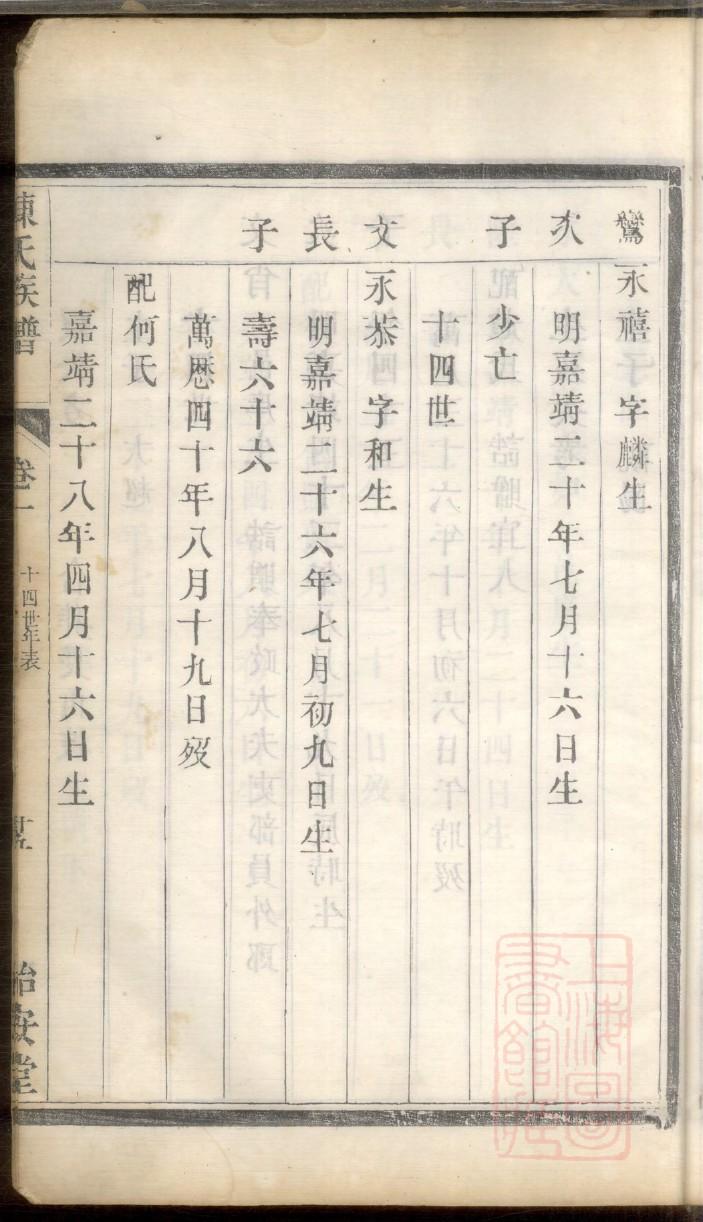 鸞永禧字麟生
次 明嘉靖三十年七月十六日生
子少亡
十四世
文永恭字和生
長 明嘉靖二十六年七月初九日生
子 壽六十六
萬歷四十年八月十九日歿
配何氏
嘉靖二十八年四月十六日生
陳氏族譜 卷一 十四世年表 廿五 治安堂
上海圖書館藏